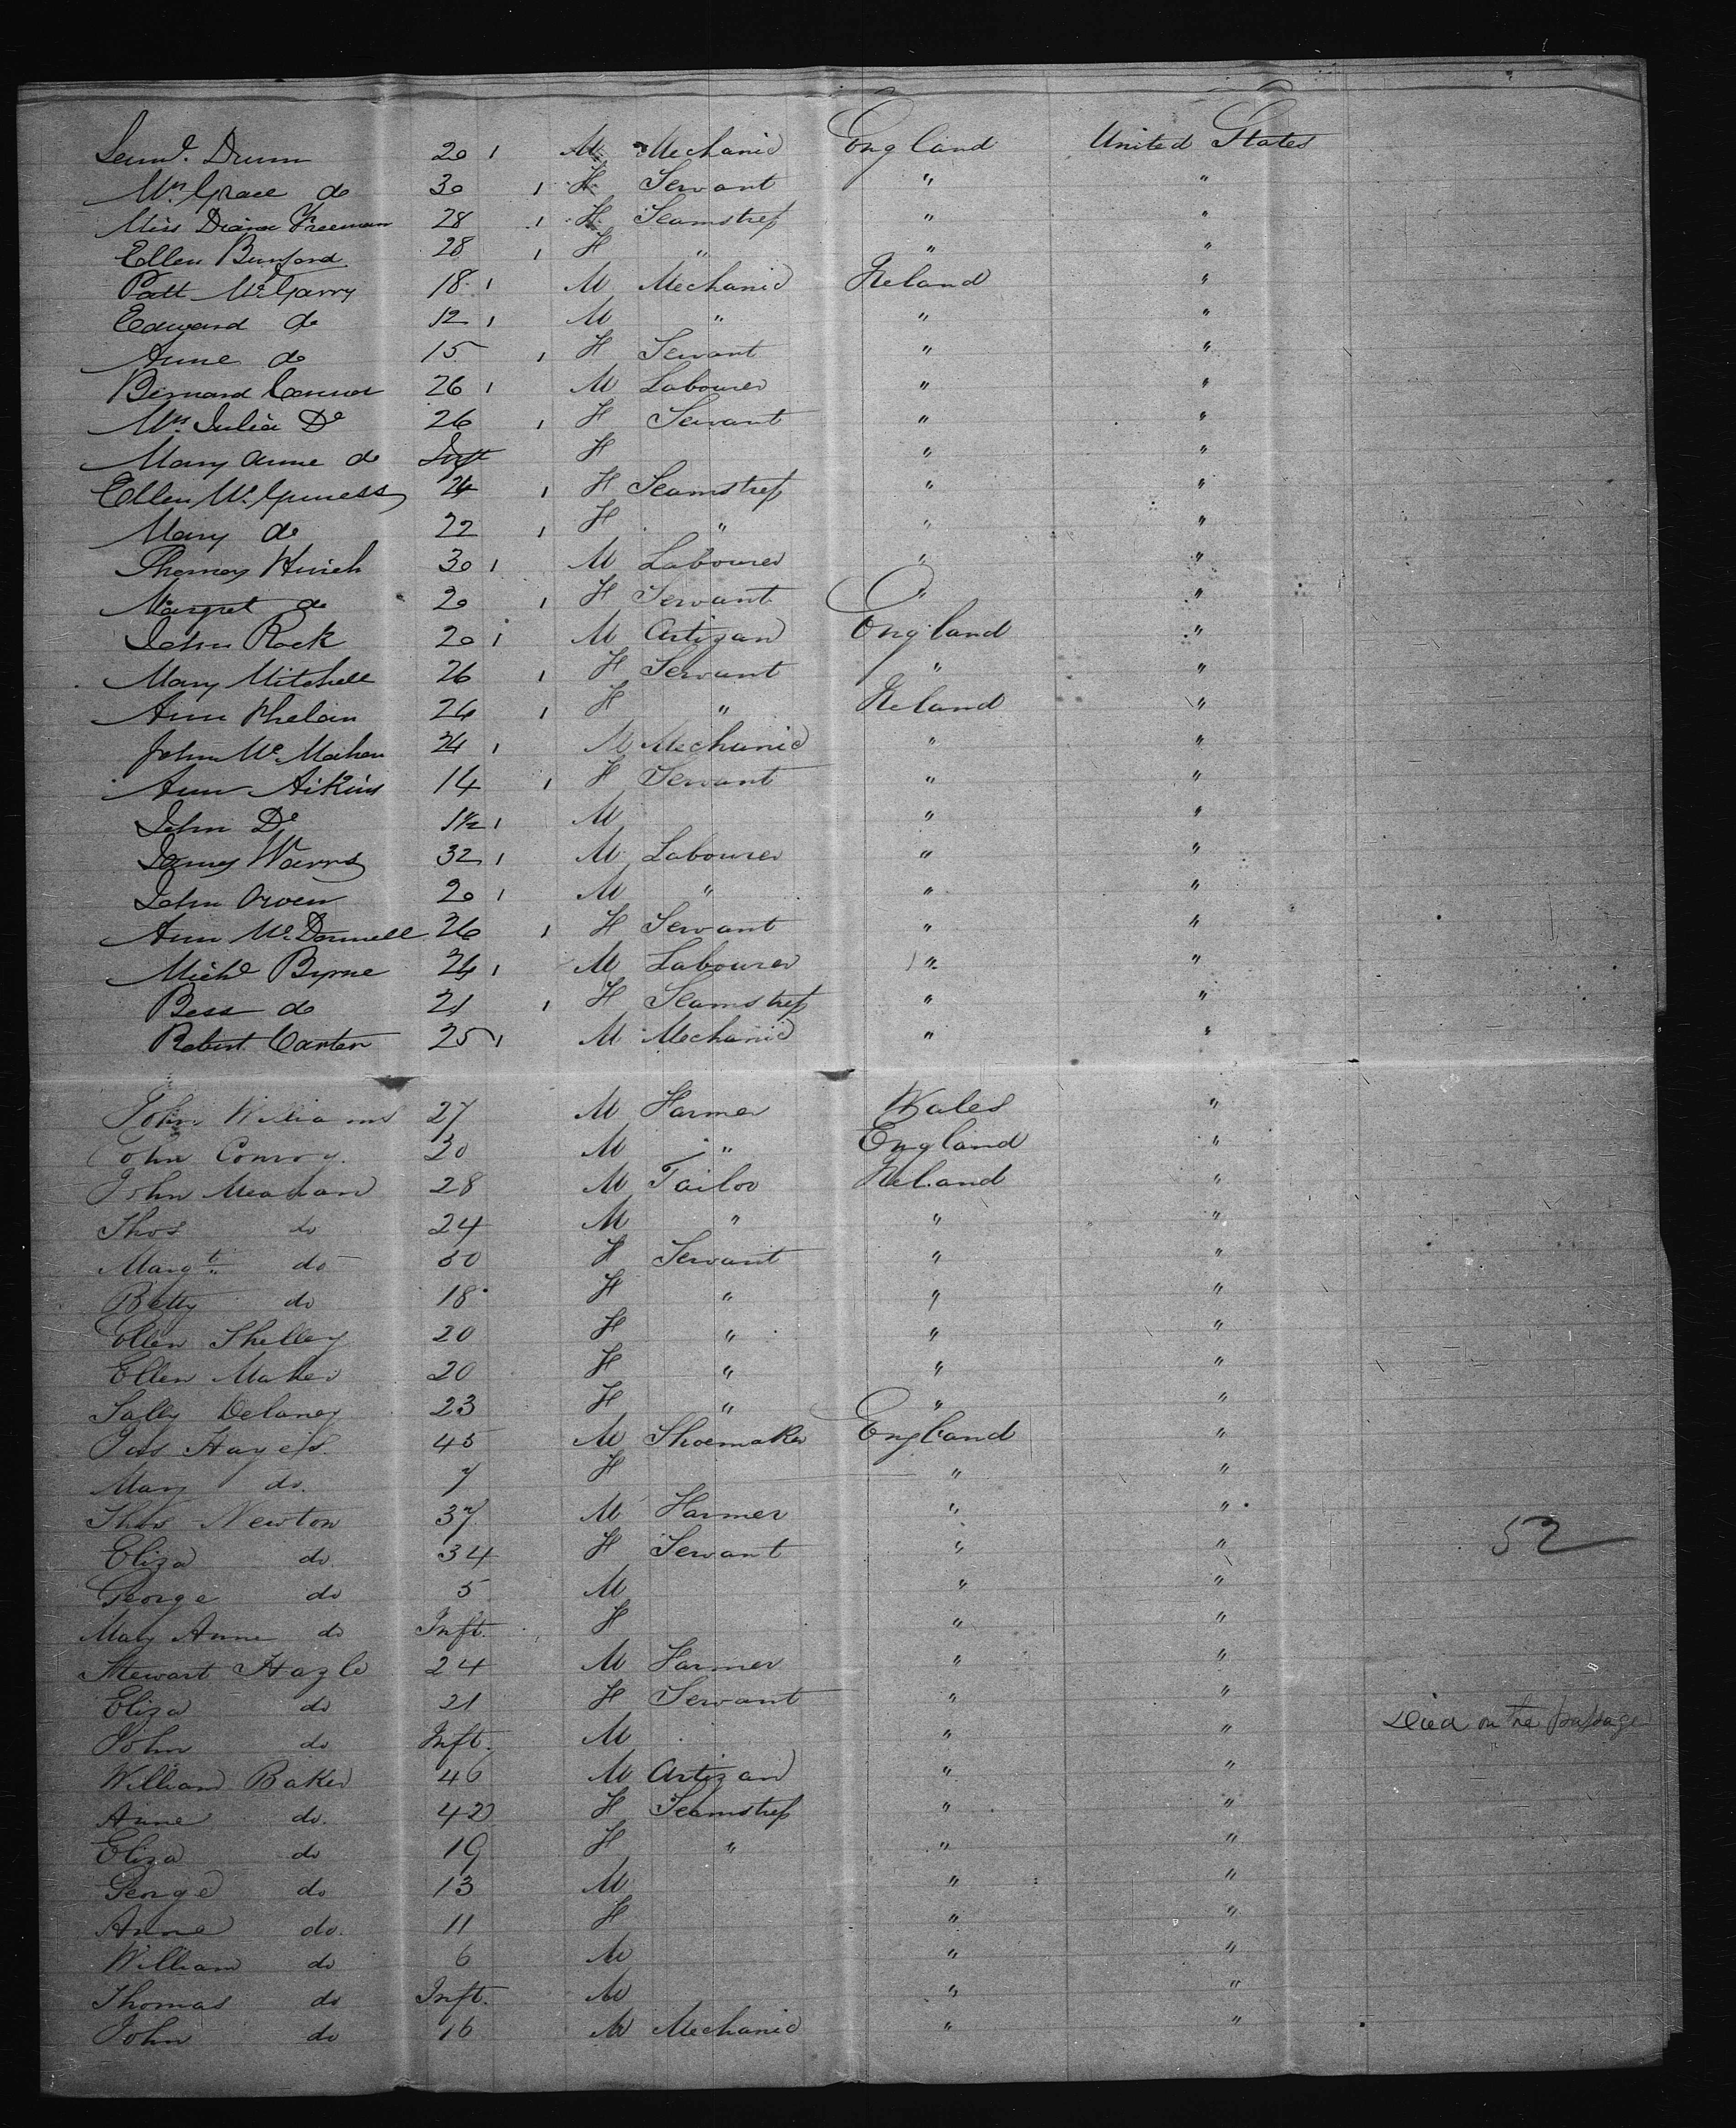 Saml. Drum 20 1 M Mechanic England United States
Mrs. Grace do 30 1 F Servant " "
Miss Diana Freeman 28 1 F Seamstress " "
Ellen Bunford 28 1 F " " "
Patt McGarry 18 1 M Mechanic Ireland "
Edward do 12 1 M " " "
Anne do 15 1 F Servant " "
Bernard Connor 26 1 M Labourer " "
Mrs. Julia Do 26 1 F Servant " "
Mary Anne do Inft F " "
Ellen McGuness 24 1 F Seamstress " "
Mary do 22 1 F " " "
Thomas 30 1 M Labourer " "
Margret do 20 1 F Servant " "
John Rock 20 1 M Artizan England "
Mary Mitchell 26 1 F Servant " "
Ann Phelan 24 1 F " Ireland "
John McMahon 24 1 M Mechanic " "
Ann Aikins 14 1 F Servant " "
John Do 1½ 1 M " "
James 32 1 M Labourer " "
John Owen 20 1 M " " "
Ann McDonnell 26 1 F Servant " "
Michl Byrne 24 1 M Labourer " "
Bess do 21 1 F Seamstress " "
Robert Carter 25 1 M Mechanic " "
John Williams 27 M Farmer Wales "
John Conroy 30 M " England "
John Meahan 28 M Tailor Ireland "
Thos do 24 M " " "
Margt. do 50 F Servant " "
Betty do 18 F " " "
Ellen Shelley 20 F " " "
Ellen Maher 20 F " " "
Sally Delaney 23 F " " "
Jas Hayes 45 M Shoemaker England "
Mary do. 7 F " "
Thos Newton 37 M Farmer " "
Eliza do. 34 F Servant " " 52
George do 5 M " "
Mary Anne do Inft. F " "
Stewart Hazle 24 M Farmer " "
Eliza do 21 F Servant " "
John do Inft. M " " Died on the passage
William Baker 46 M Artizan " "
Anne do. 42 F Seamstress " "
Eliza do 19 F " " "
George do 13 M " "
Anne do. 11 F " "
William do 6 M " "
Thomas do Inft. M " "
John do 16 M Mechanic " "